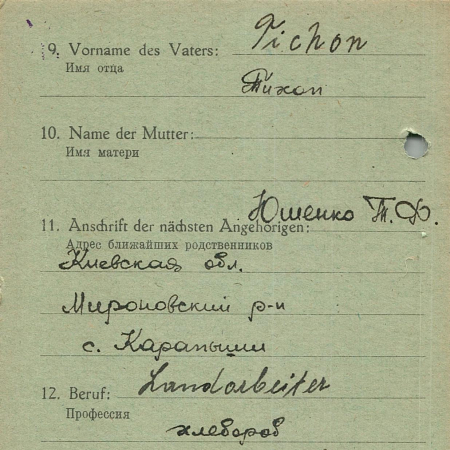 9. Vorname des Vaters: Tichon
Имя отца
Тихон
10. Name der Mutter:
Имя матери
Ющенко Т. Ф.
11. Anschrift der nächsten Angehörigen:
Адрес ближайших родственников
Киевская обл.
Мироновский р-н
с. Карапыши
12. Beruf: Landarbeiter
Профессия
хлебороб